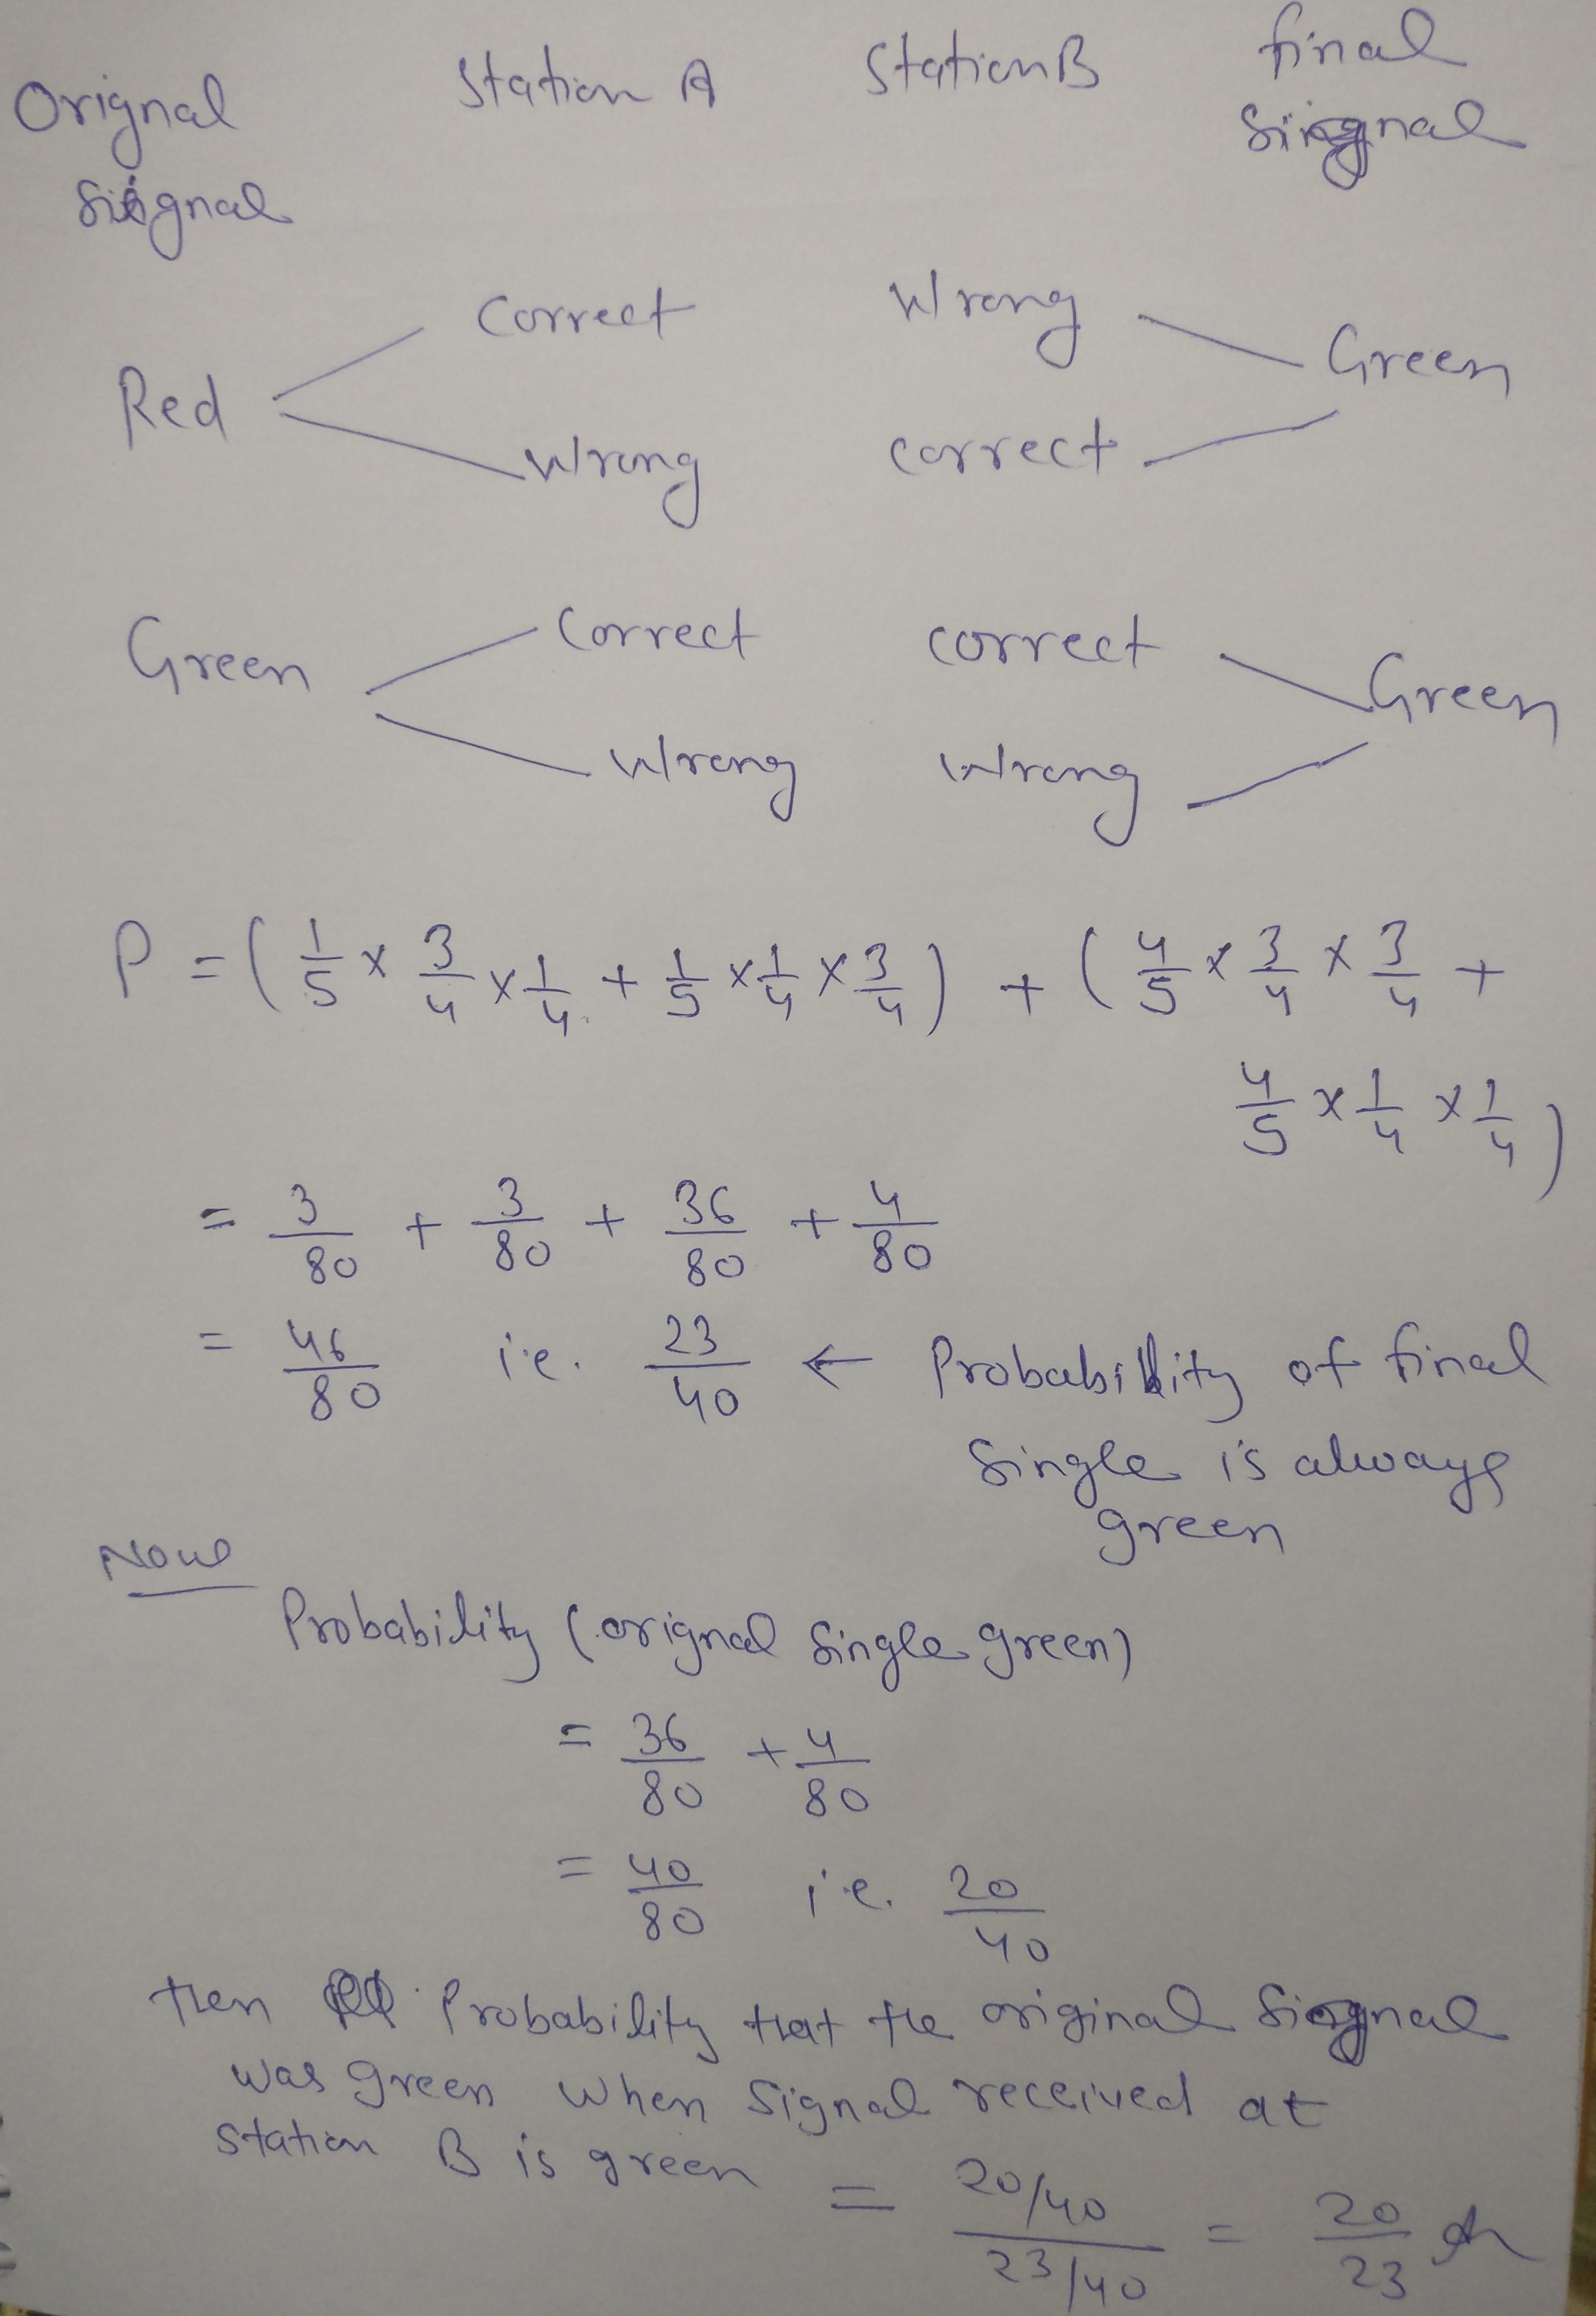 Orignal Station A Station B final
Signal Signal
Correct Wrong
Red Green
Wrong correct
Correct correct
Green Green
Wrong Wrong
P = ( 1/5 × 3/4 × 1/4 + 1/5 × 1/4 × 3/4 ) + ( 4/5 × 3/4 × 3/4 +
4/5 × 1/4 × 1/4 )
= 3/80 + 3/80 + 36/80 + 4/80
= 46/80 i.e. 23/40 ← Probability of final
Single is always
green
Now
Probability (orignal Single green)
= 36/80 + 4/80
= 40/80 i.e. 20/40
then Probability that the original Signal
was green when Signal received at
Station B is green = 20/40 / 23/40 = 20/23